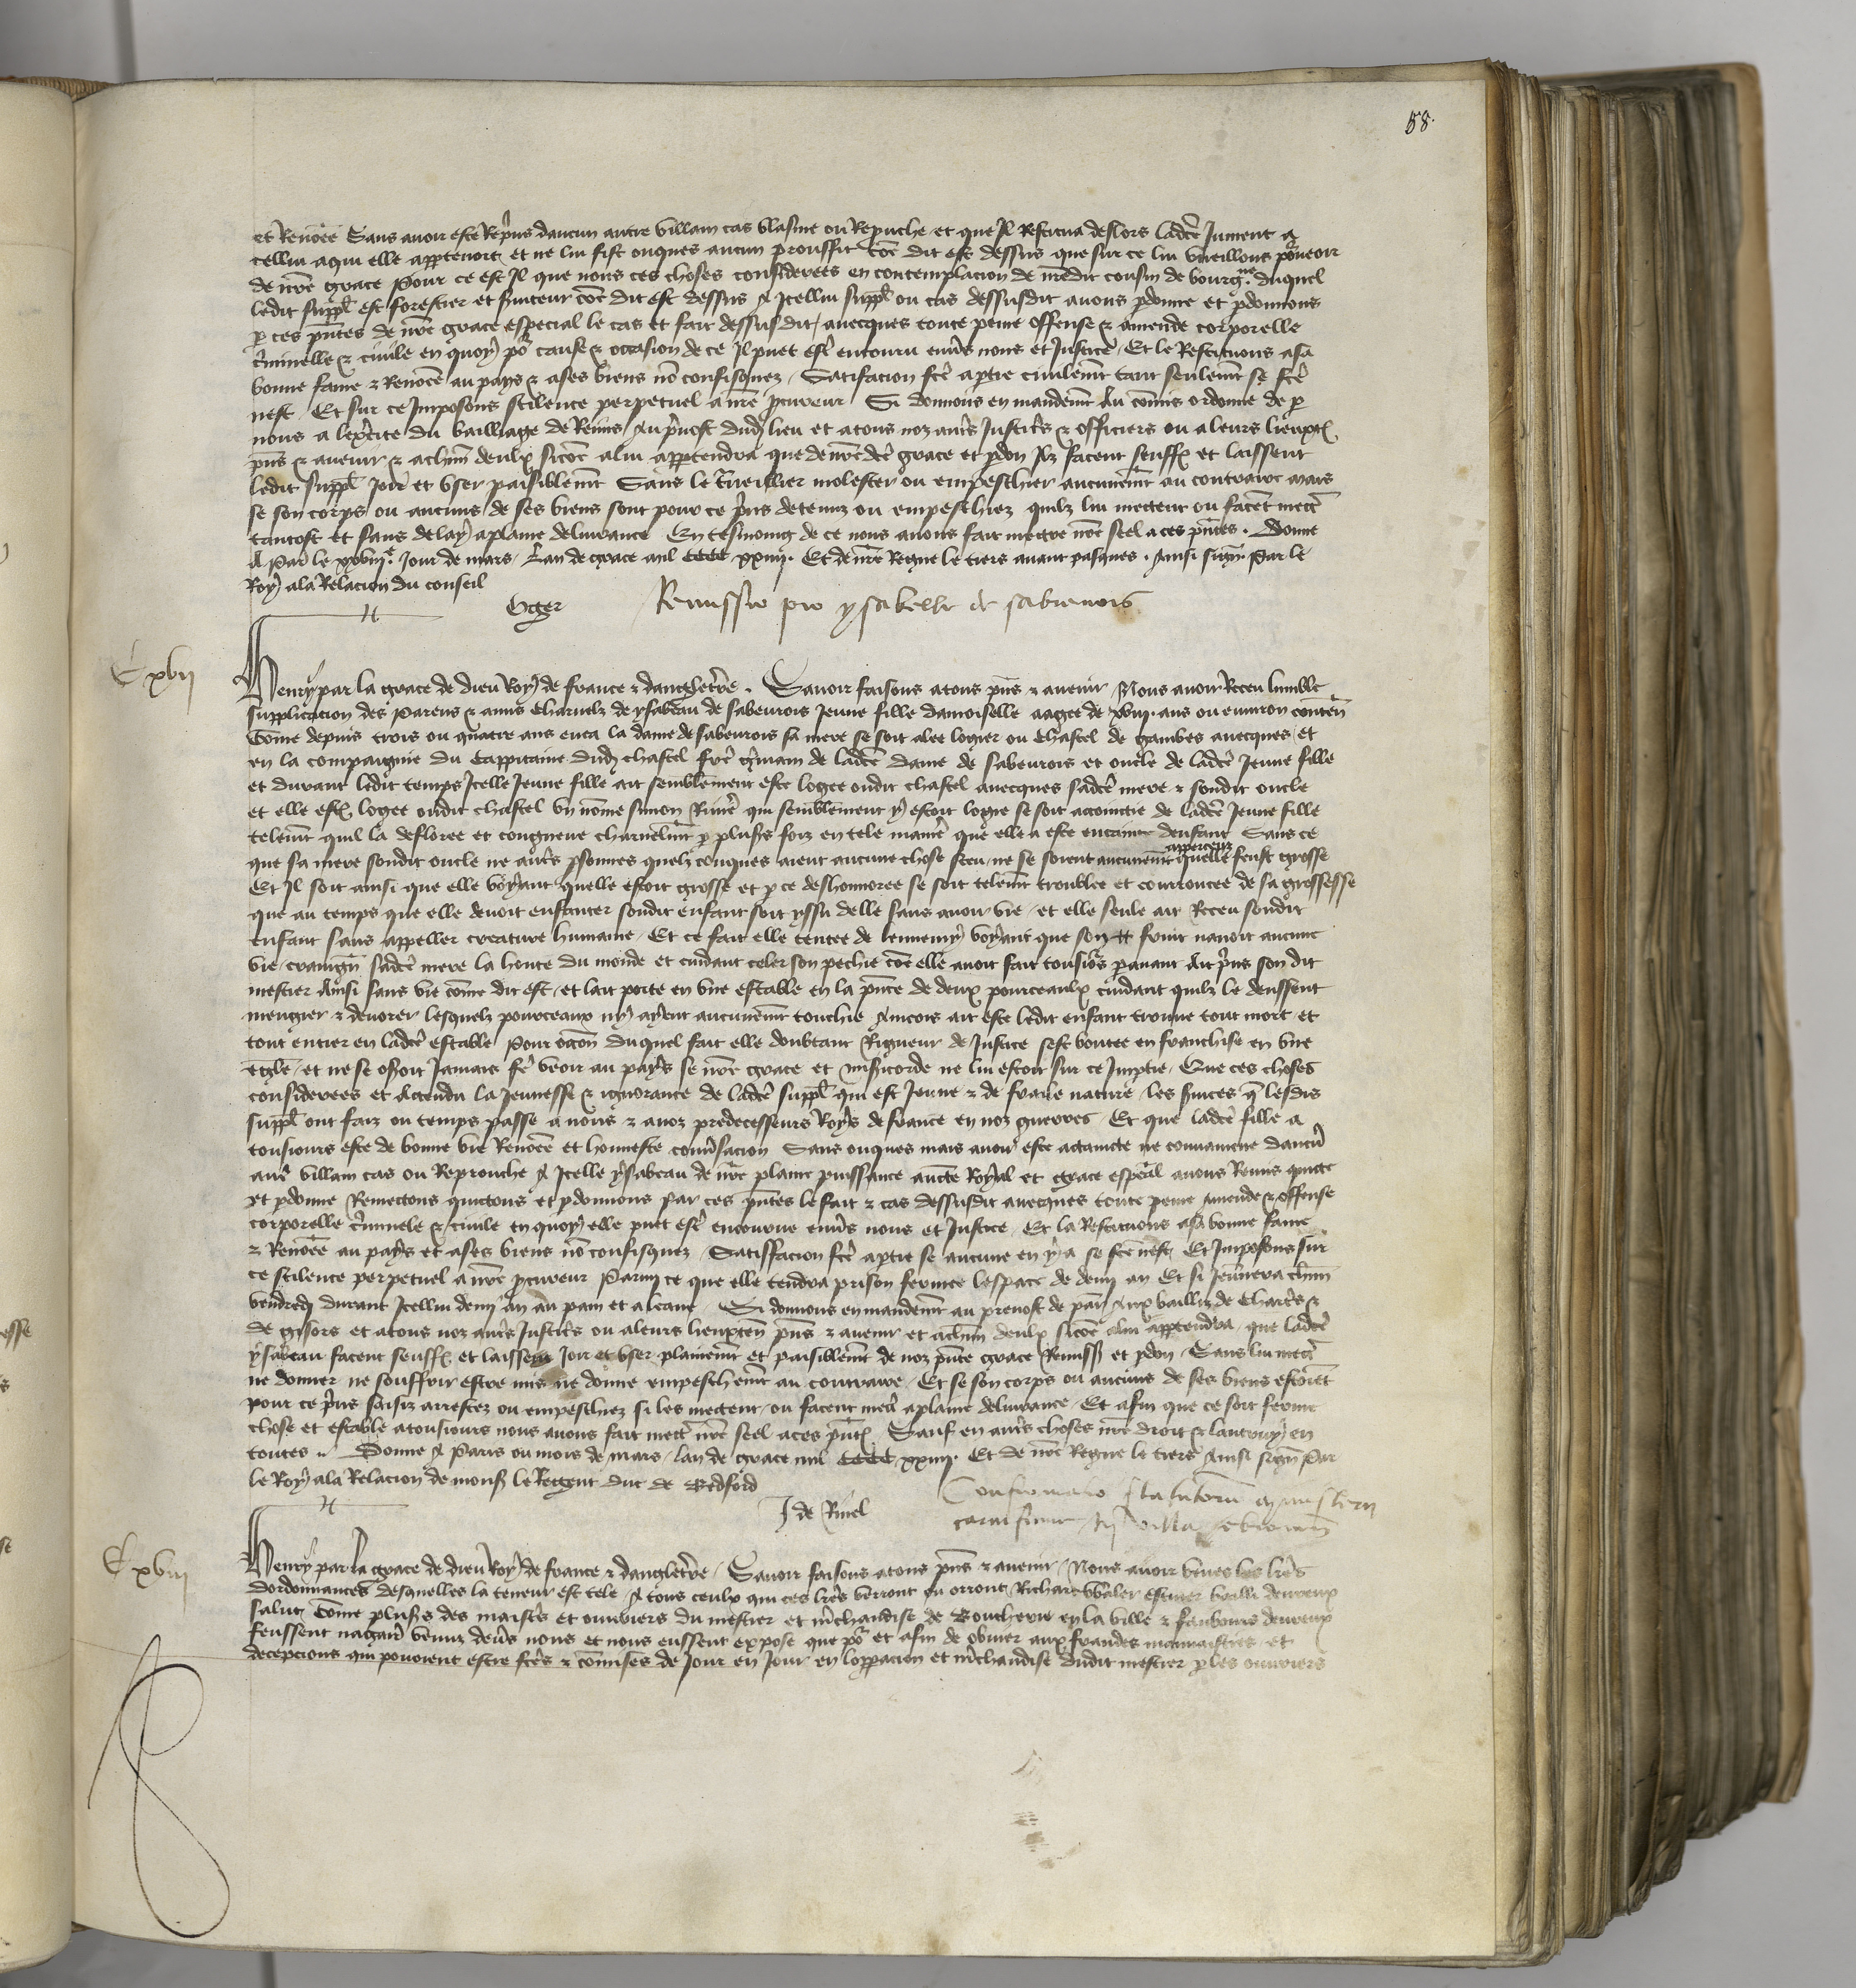 58.
et Renõee Sans auoir este Rep̃ns daucun autre villain cas blasme ou Repuche et que Jl Restitua deslors ladcẽ Jument a
cellui aqui elle apptenoit et ne lui fist onques aucun prouffit cõe dit est dessus que sur ce lui vueillons po᷑ueoir
de nr̃e grace Pour ce est Jl que nous ces choses considerees en contemplacion de nr̃edit cousin de bourg.ne duquel
ledit suppl̃ est forestier et suiteur cõe dit est dessus A Jcellui suppl̃ ou cas dessusdit auons pdonne et pdonnons
p ces pñtes de nr̃e grace especial le cas et fait dessusdit auecques toute peine offense & amende corporelle
c̃minelle & ciuile en quoy po᷑ cause & occasion de ce Jl puet est̃ encouru enus̃ nous et Justice Et le Restituons asa
bonne fame & Renõee au pays & ases biens nõ confisquez Satisfacion fcẽ aptie ciuilemẽt tant seulemẽt se fcẽ
nest Et sur ce Jmposons scilence perpetuel a nr̃e pcureur Si donnons en mandemẽt Au cõmis ordonne de p
nous a lexc̃ite du bailliage de Reims Au p̃uost dudͥ lieu et atous noz aut̃s Justic̃s & officiers ou a leurs lieuxteñ
pñs & auenir & achun̄ deulx sicõe alui apptendra que de nr̃edcẽ grace et pdon Jlz facent seuffr̃ et laissent
ledit suppl̃ Joir et vser paisiblemẽt Sans le trueillier molester ou empeschier aucunemẽt au contraire mais
se son corps ou aucuns de ses biens sont pour ce p̃ns detenuz ou empeschiez quilz lui mectent ou facẽt mect̃
tantost et sans delay aplaine deliurance En tesmoing de ce nous auons fait mectre nr̃e seel a ces pñtes . Donne
A Par̃ le xxviijᵉ. Jour de mars Lan de grace mil cccc xxiiij. Et de nr̃e Regne le tiers auant pasques . Ainsi sign̄. Par le
Roy ala Relacion du conseil
Oger
Remissio pro ysabelle de sabrenois
C xvij
Henry par la grace de dieu Roy de france & danglet̃re . Sauoir faisons atous pñs & auenir Nous auoir Receu lumble
supplicacion des Parens & amis charnelz de ysabeau de sabeurois Jeune fille damoiselle aagee de xviij. ans ou enuiron conteñ
Cõme depuis trois ou quatre ans enca la dame de sabeurois sa mere se soit alee logier ou chastel de gambes auecques et
en la compaignie du Cappitaine dudͥ chastel frẽ gm̃ain de ladcẽ dame de sabeurois et oncle de ladcẽ Jeune fille
et durant ledit temps Jcelle Jeune fille ait semblement este logee oudit chastel auecques sadcẽ mere & sondit oncle
et elle est̃ logee oudit chastel vn nõme simon Riuiẽ qui semblement y estoit logie se soit accointie de ladcẽ Jeune fille
telemẽt quil la defloree et congneue charnelmẽt p plus̃s foiz en tele manie᷑ que elle a este encainte denfant Sans ce
que sa mere sondit oncle ne aut̃s psonnes quelzconques aient aucune chose sceu ne se soient aucunemẽt apperceuz quelle feust grosse
Et Jl soit ainsi que elle voyant quelle estoit grosse et p ce deshonnoree se soit telemẽt troublee et courroucee de sa grossesse
que au temps que elle deuoit enfanter sondit enfant soit yssu delle sans auoir vie et elle seule ait Receu sondit
enfant sans appeller creature humaine Et ce fait elle tentee de lennemy voyant que son fruit nauoit aucune
vie craign̄ sadcẽ mere la honte du monde et cuidant celer son pechie cõe elle auoit fait tousio᷑s pauant Ait p̃ns son dit
mestier Ainsi sans vie cõme dit est et lait porte en vne estable en la pñce de deux pourceaulx cuidant quilz le deussent
mengier & deuorer lesquelz pourceaux ny ayent aucunemẽt touchie Aincois ait este ledit enfant trouue tout mort et
tout entier en ladcẽ estable Pour occõn duquel fait elle doubtant Rigueur de Justice sest boutee en franchise en vne
egl̃e et ne se osoit Jamais fẽ veoir au pays se nr̃e grace et misicorde ne lui estoit sur ce Jmptie Que ces choses
considerees et Actendu la Jeunesse & ignorance de ladcẽ suppl̃ qui est Jeune & de fraile nature les suices q̃ lesdis
suppl̃ ont faiz ou temps passe a nous & anoz predecesseurs Roys de france en noz guerres Et que ladcẽ fille a
tousiours este de bonne vie Renõee et honneste conu̾sacion Sans onques mais auoir este actainte ne conuaincue daucũ
aut̃ villain cas ou Reprouche A Jcelle ysabeau de nr̃e plaine puissance aucte Royal et grace esp̃eal auons Remis quicte
et pdonne Remectons quictons et pdonnons Par ces pñtes le fait & cas dessusdit auecques toute peine Amende & offense
corporelle c̃minele & ciuile en quoy elle puet est̃ encourue enus̃ nous et Justice Et la Restituons asa bonne fame
& Renõee au pays et ases biens nõ confisquez Satisfacion fcẽ aptie se aucune en y a se fcẽ nest Et Jmposons sur
ce scilence perpetuel a nr̃e pcureur Parmj ce que elle tendra prison fermee lespace de demj an Et si Jeunera chũn
vendredj durant Jcellui demj an au pain et aleaue Si donnons en mandemẽt au preuost de par̃ Aux bailliz de Chart̃s &
de gisors et atous noz aut̃s Justic̃s ou aleurs lieuxteñ pñs & auenir et achũn deulx sicõe alui apptendra que ladcẽ
ysabeau facent seuffr̃ et laissent Joir et vser plainemẽt et paisiblemẽt de noz pñte grace Remiss̃ et pdon Sans lui mect̃
ne donner ne souffrir estre mis ne donne empeschemẽt au contraire Et se son corps ou aucuns de ses biens estoiẽt
pour ce p̃ns saisiz arrestez ou empeschiez si les mectent ou facent mect̃ aplaine deliurance Et afin que ce soit ferme
chose et estable atousiours nous auons fait mect̃ nr̃e seel aces pñt̃ Sauf en aut̃s choses nr̃e droit & lautruy en
toutes .. Donne A Paris ou mois de mars lan de grace mil cccc xxiiij. Et de nr̃e Regne le tiers Ainsi sign̄ Par
le Roy ala Relacion de mons̃ le Regent duc de Bedford
J de Rinel
Confirmatio statutorum
C xviij
Henry par la grace de dieu Roy de france & danglet̃re Sauoir faisons atous pñs & auenir Nous auoir veues les lr̃es
dordonnances desquelles la teneur est tele A tous ceulx qui ces lr̃es verront ou orront Richart Waler escuier bailli deureux
salut Cõme plus̃s des maist̃s et ouuriers du mestier et m̃chandise de Boucherie en la ville & faubours deureux
feussent nagair̃ venuz deũs nous et nous eussent expose que po᷑ et afin de obuier aux fraudes mauuaisties et
decepcions qui pouoient estre fcẽs & cõmises de Jour en Jour en loppacion et m̃chandise dudit mestier p les ouuriers